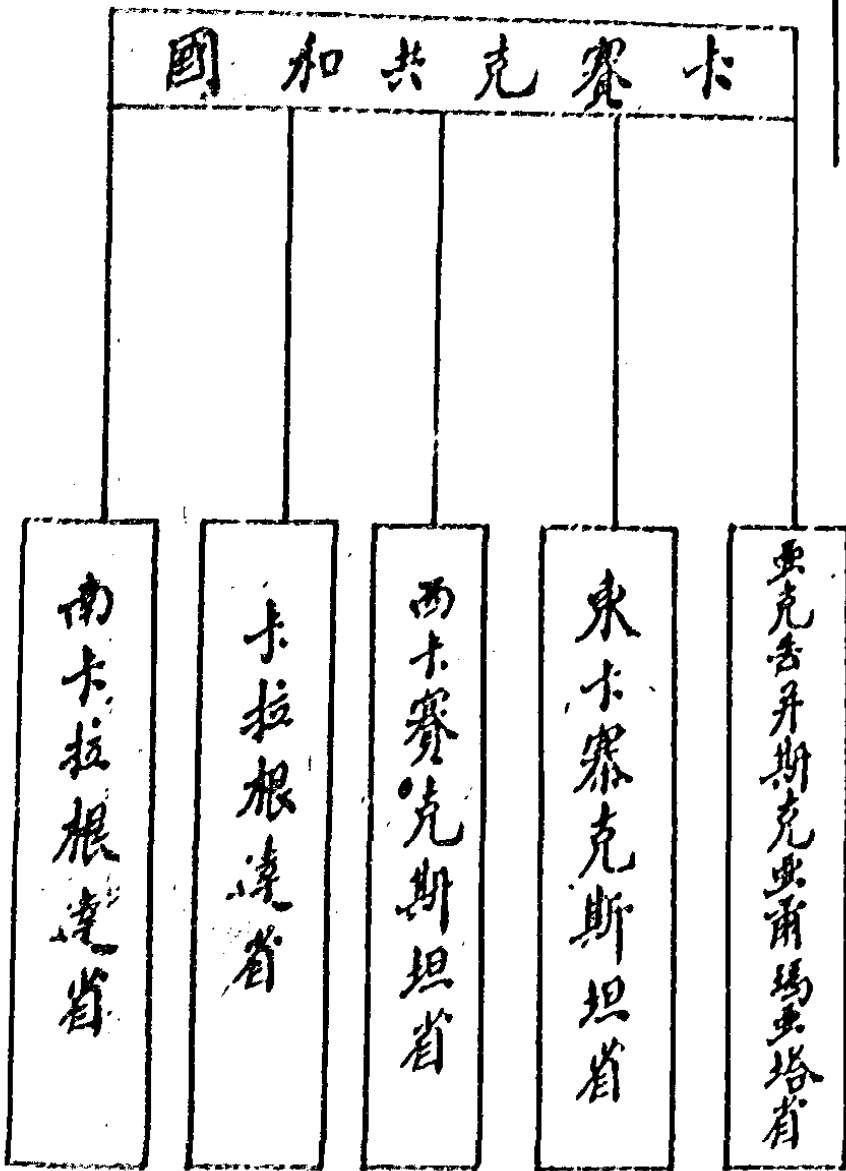 卡賽克共和國
亞克并斯克亞爾瑪亞塔省
東卡賽克斯坦省
西卡賽克斯坦省
卡拉根達省
南卡拉根達省